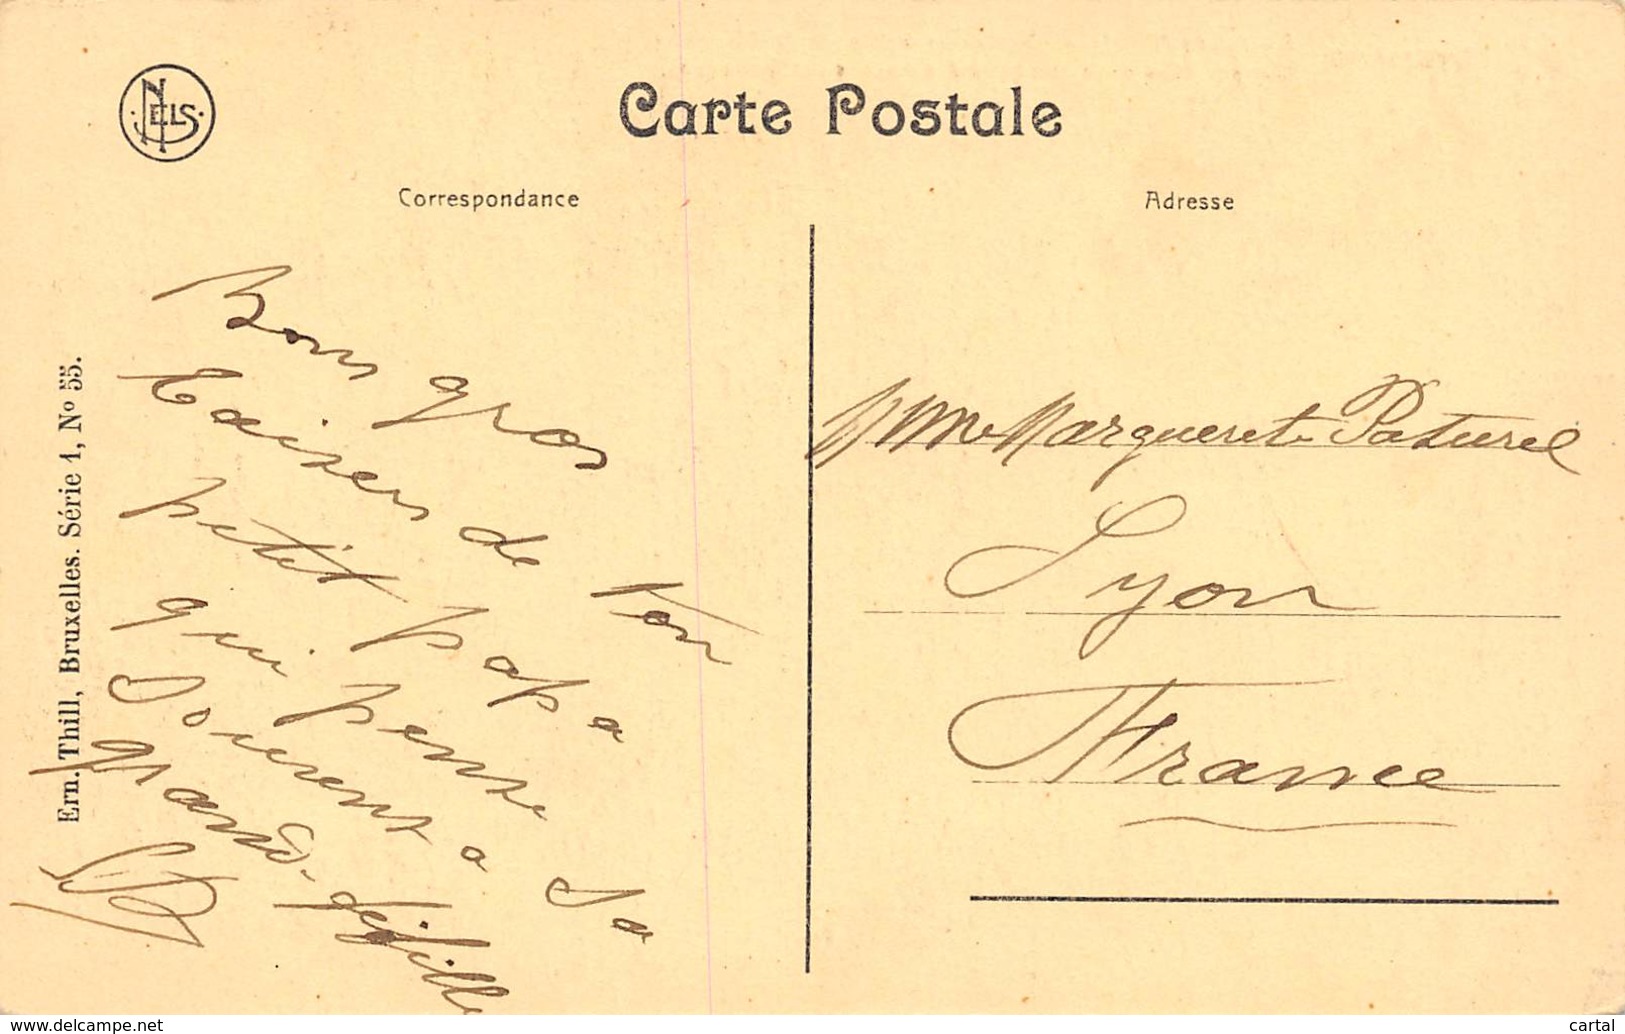 NELS
Carte Postale
Correspondance
Adresse
Ern. Thill, Bruxelles. Série 1, Nº 55.
Bons gros
baisers de ton
petit papa
qui pense
souvent à sa
grande fifille
Mme Marguerite Paturel
Lyon
France
www.delcampe.net
cartal